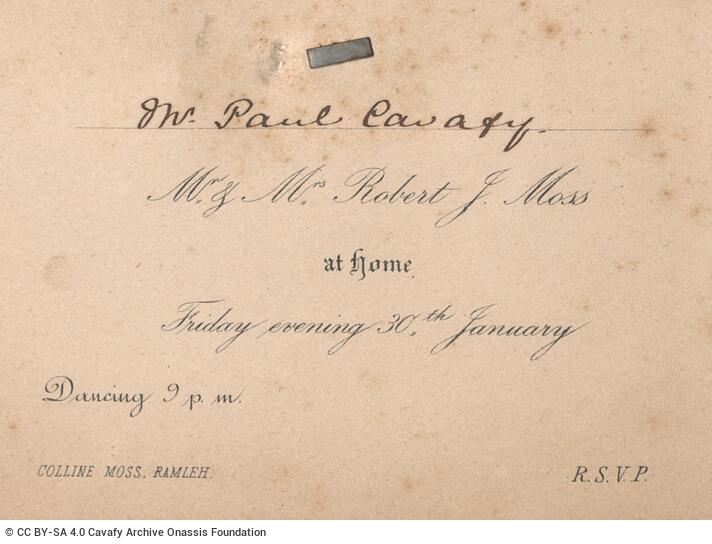 Mr. Paul Cavafy.
Mr. & Mrs. Robert J. Moss
at Home
Friday evening 30.th January
Dancing 9 p. m.
COLLINE MOSS, RAMLEH.
R.S.V.P.
© CC BY-SA 4.0 Cavafy Archive Onassis Foundation